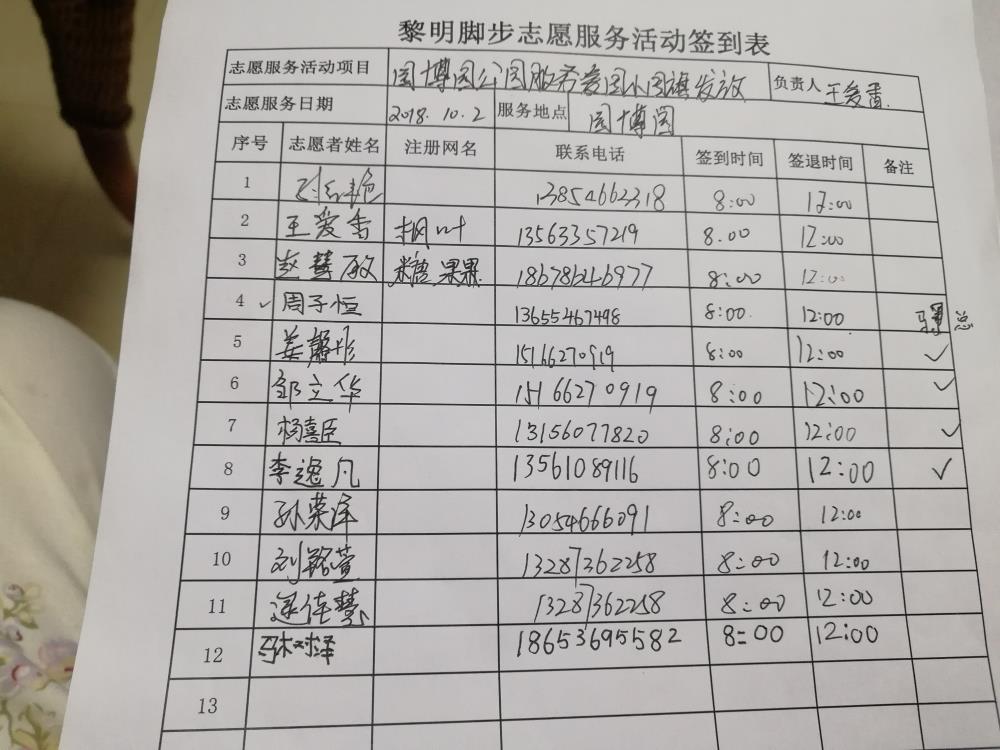 黎明脚步志愿服务活动签到表
志愿服务活动项目 园博园公园服务爱国小国旗发放 负责人 王爱香
志愿服务日期 2018.10.2 服务地点 园博园
序号 志愿者姓名 注册网名 联系电话 签到时间 签退时间 备注
1 13854662318 8:00 12:00
2 王爱香 枫叶 13563357219 8.00 12:00
3 赵慧敏 糖果果 18678646977 8:00 12:00
4 周子恒 13655467498 8:00 12:00
5 姜馨彤 15166270919 8:00 12:00 ✓
6 邹立华 15166270919 8:00 12:00 ✓
7 杨喜臣 13156077820 8:00 12:00 ✓
8 李逸凡 13561089116 8:00 12:00 ✓
9 孙荣泽 13054666091 8:00 12:00
10 刘铭萱 13287362258 8:00 12:00
11 13287362258 8:00 12:00
12 18653695582 8:00 12:00
13